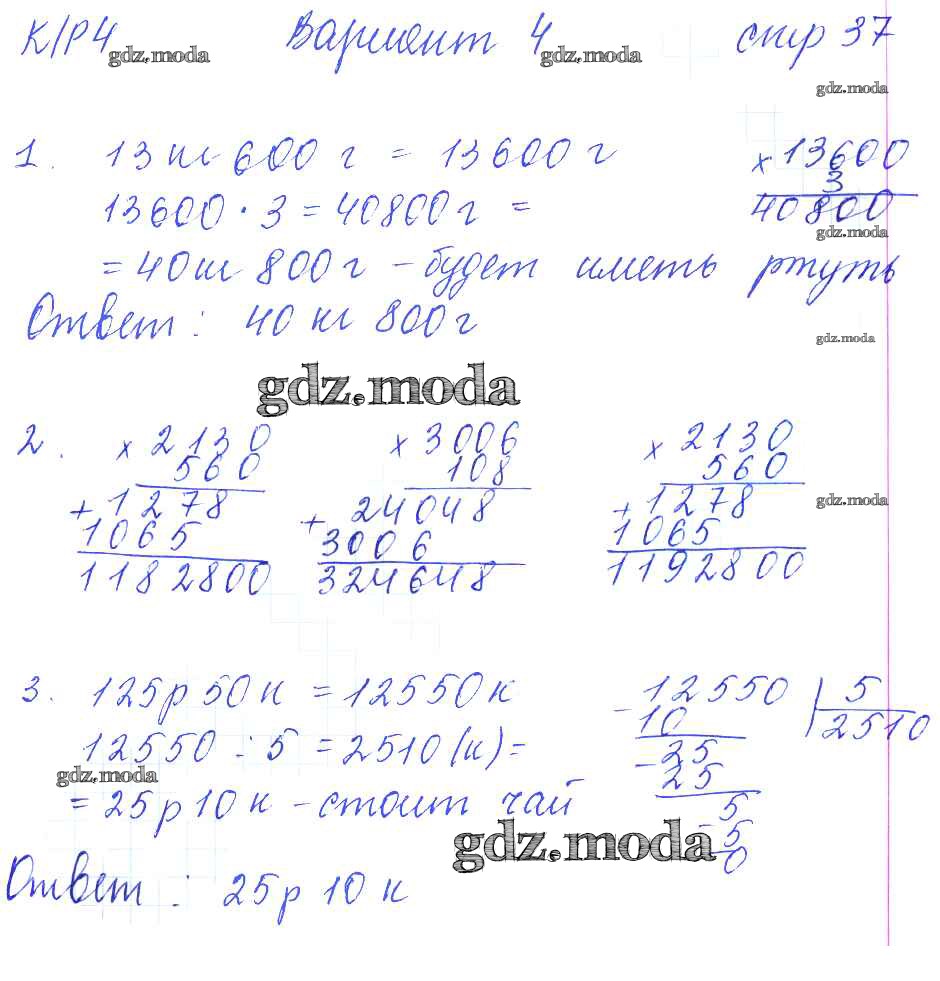 К/Р4 Вариант 4 стр 37
gdz.moda gdz.moda
gdz.moda
1. 13 кг 600 г = 13600 г
13600 · 3 = 40800 г =
= 40 кг 800 г – будет иметь ртуть
Ответ : 40 кг 800 г
× 13600
3
40800
gdz.moda
gdz.moda
gdz.moda
2. × 2130
560
+ 1278
1065
1182800
× 3006
108
+ 24048
3006
324648
× 2130
560
+ 1278
1065
1192800
gdz.moda
3. 125 р 50 к = 12550 к
12550 : 5 = 2510 (к) =
gdz.moda
= 25 р 10 к – стоит чай
Ответ : 25 р 10 к
- 12550 | 5
10 2510
- 25
25
5
- 5
0
gdz.moda